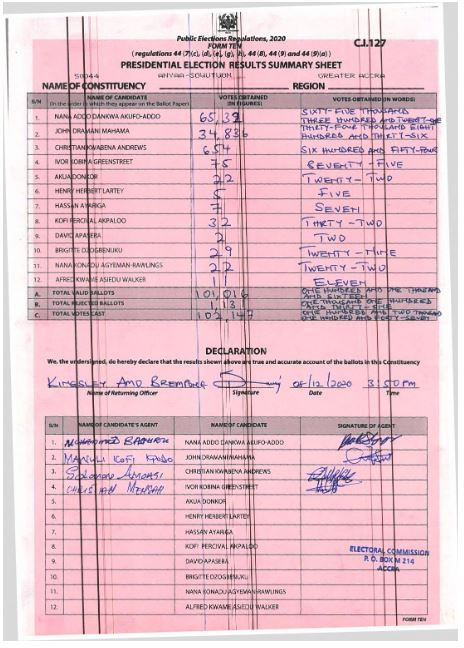 Public Elections Regulations, 2020
FORM TEN
C.I.127
( regulations 44 (7)(c), (d), (e), (g), (h), 44 (8), 44 (9) and 44 (9)(a) )
PRESIDENTIAL ELECTION RESULTS SUMMARY SHEET
GREATER ACCRA
NAME OF CONSTITUENCY REGION
S/N NAME OF CANDIDATE VOTES OBTAINED VOTES OBTAINED (IN WORDS)
(In the order in which they appear on the Ballot Paper) (IN FIGURES)
1. NANA ADDO DANKWA AKUFO-ADDO SIXTY-FIVE THOUSAND
THREE HUNDRED AND TWENTY-ONE
2. JOHN DRAMANI MAHAMA 34,836 THIRTY-FOUR THOUSAND EIGHT
HUNDRED AND THIRTY-SIX
3. CHRISTIAN KWABENA ANDREWS 654 SIX HUNDRED AND FIFTY-FOUR
4. IVOR KOBINA GREENSTREET 75 SEVENTY-FIVE
5. AKUA DONKOR 22 TWENTY-TWO
6. HENRY HERBERT LARTEY 5 FIVE
7. HASSAN AYARIGA 7 SEVEN
8. KOFI PERCIVAL AKPALOO 32 THIRTY-TWO
9. DAVID APASERA 2 TWO
10. BRIGITTE DZOGBENUKU 29 TWENTY-NINE
11. NANA KONADU AGYEMAN-RAWLINGS 22 TWENTY-TWO
12. ALFRED KWAME ASIEDU WALKER 11 ELEVEN
A. TOTAL VALID BALLOTS 101,016 ONE HUNDRED AND ONE THOUSAND
AND SIXTEEN
B. TOTAL REJECTED BALLOTS ONE THOUSAND ONE HUNDRED
AND THIRTY-ONE
C. TOTAL VOTES CAST 102,147 ONE HUNDRED AND TWO THOUSAND
ONE HUNDRED AND FORTY-SEVEN
DECLARATION
We, the undersigned, do hereby declare that the results shown above are true and accurate account of the ballots in this Constituency
KINGSLEY 08/12/2020 3:50PM
Name of Returning Officer Signature Date Time
S/N NAME OF CANDIDATE'S AGENT NAME OF CANDIDATE SIGNATURE OF AGENT
1. NANA ADDO DANKWA AKUFO-ADDO
2. KOFI JOHN DRAMANI MAHAMA
3. SOLOMON CHRISTIAN KWABENA ANDREWS
4. CHRISTIAN MENSAH IVOR KOBINA GREENSTREET
5. AKUA DONKOR
6. HENRY HERBERT LARTEY
7. HASSAN AYARIGA
8. KOFI PERCIVAL AKPALOO
9. DAVID APASERA
10. BRIGITTE DZOGBENUKU
11. NANA KONADU AGYEMAN-RAWLINGS
12. ALFRED KWAME ASIEDU WALKER
ELECTORAL COMMISSION
P. O. BOX M 214
ACCRA
FORM TEN